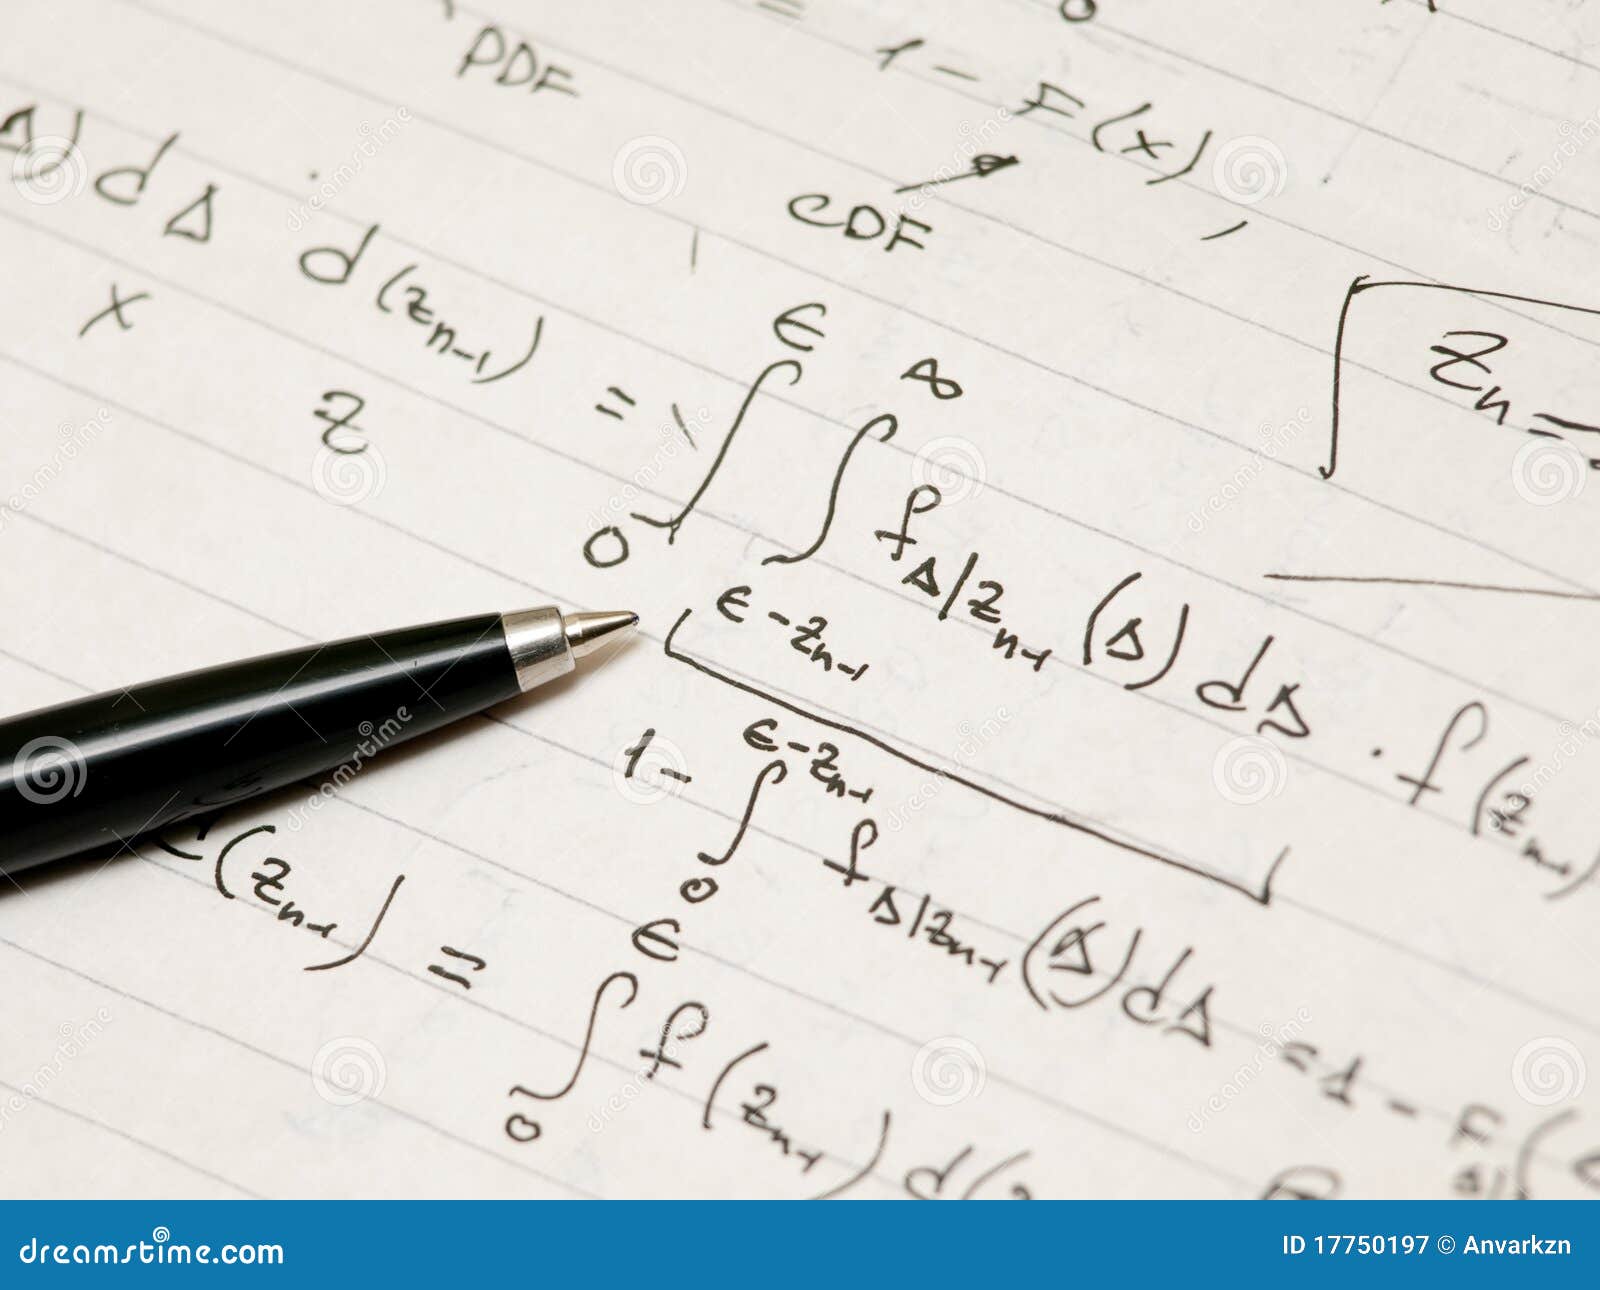 PDF
1 - F(x),
CDF
Δ) dΔ d(z_{n-1}) = \int_0^ϵ \int_{ϵ-z_{n-1}}^∞ f_{Δ|z_{n-1}}(Δ) dΔ · f(z_{n-1})
x
z
z_n =
1 - \int_0^{ϵ-z_{n-1}} f_{Δ|z_{n-1}}(Δ) dΔ = 1 - F
(z_{n-1}) = \int_0^ϵ f(z_{n-1}) d(
dreamstime.com
ID 17750197 © Anvarkzn